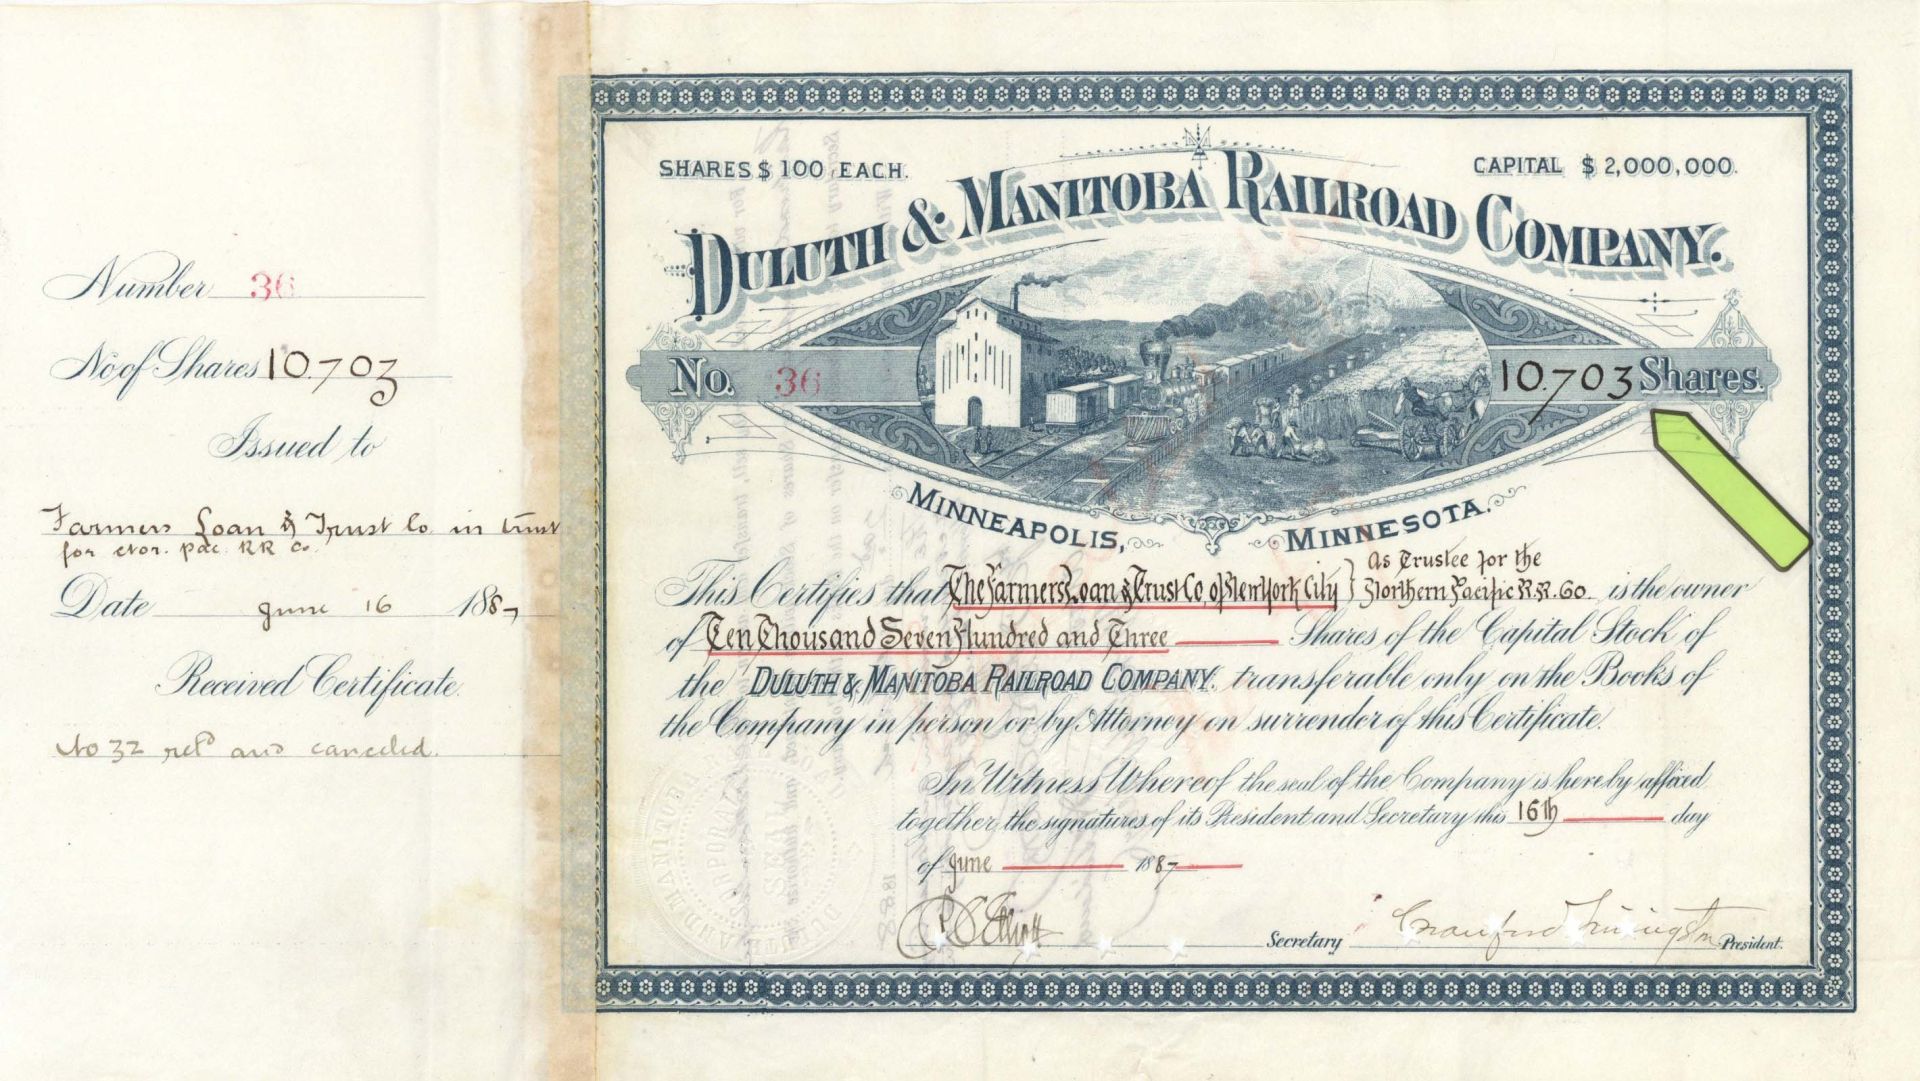 Number 36
No of Shares 10.703
Issued to
Farmers Loan & Trust Co in trust
for Nor. Pac. RR Co.
Date June 16 1887
Received Certificate.
No 32 retd and canceled.
SHARES $ 100 EACH.
CAPITAL $ 2,000,000.
DULUTH & MANITOBA RAILROAD COMPANY.
No. 36
10.703 Shares.
MINNEAPOLIS, MINNESOTA.
As Trustee for the
This Certifies that The Farmers Loan & Trust Co, of New York City } Northern Pacific R.R. Co. is the owner
of Ten Thousand Seven Hundred and Three Shares of the Capital Stock of
the DULUTH & MANITOBA RAILROAD COMPANY. transferable only on the Books of
the Company in person or by Attorney on surrender of this Certificate.
In Witness Whereof the seal of the Company is hereby affixed
together the signatures of its President and Secretary this 16th day
of June 1887
Secretary
President.
DULUTH AND MANITOBA
CORPORATE
SEAL